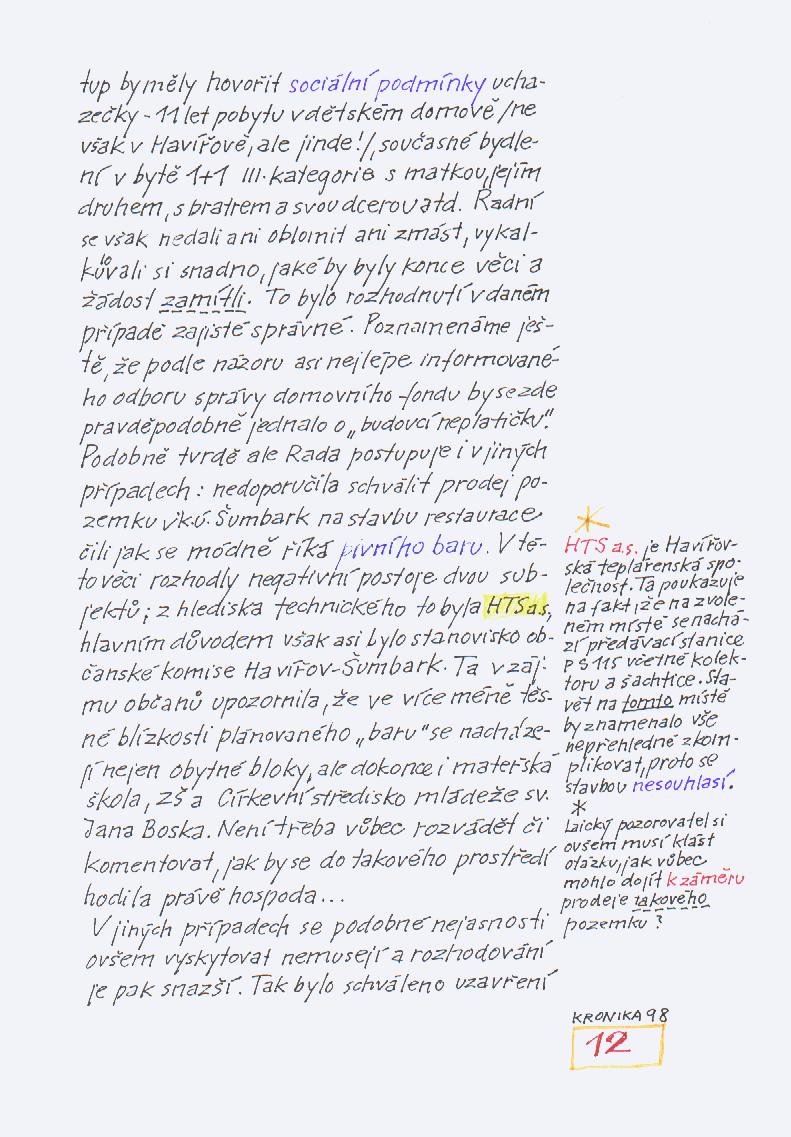 tup by měly hovořit sociální podmínky ucha-
zečky - 11 let pobytu v dětském domově /ne
však v Havířově, ale jinde!/, současné bydle-
ní v bytě 1+1 III. kategorie s matkou, jejím
druhem, s bratrem a svou dcerou atd. Radní
se však nedali ani oblomit ani zmást, vykal-
kulovali si snadno, jaké by byly konce věci a
žádost zamítli. To bylo rozhodnutí v daném
případě zajisté správné. Poznamenáme ješ-
tě, že podle názoru asi nejlépe informované-
ho odboru správy domovního fondu by se zde
pravděpodobně jednalo o „budoucí neplatičku".
Podobně tvrdě ale Rada postupuje i v jiných
případech: nedoporučila schválit prodej po-
zemku v k.ú. Šumbark na stavbu restaurace
čili jak se módně říká pivního baru. V té-
to věci rozhodly negativní postoje dvou sub-
jektů; z hlediska technického to byla HTS as,
hlavním důvodem však asi bylo stanovisko ob-
čanské komise Havířov-Šumbark. Ta v záj-
mu občanů upozornila, že ve více méně těs-
né blízkosti plánovaného „baru" se nacháze-
jí nejen obytné bloky, ale dokonce i mateřská
škola, ZŠ a Církevní středisko mládeže sv.
Jana Boska. Není třeba vůbec rozvádět či
komentovat, jak by se do takového prostředí
hodila právě hospoda...
V jiných případech se podobné nejasnosti
ovšem vyskytovat nemusejí a rozhodování
je pak snazší. Tak bylo schváleno uzavření
*
HTS a.s. je Havířov-
ská teplárenská spo-
lečnost. Ta poukazuje
na fakt, že na zvole-
ném místě se nachá-
zí předávací stanice
PS 115 včetně kolek-
toru a šachtice. Sta-
vět na tomto místě
by znamenalo vše
nepřehledně zkom-
plikovat, proto se
stavbou nesouhlasí.
*
Laický pozorovatel si
ovšem musí klást
otázku, jak vůbec
mohlo dojít k záměru
prodeje takového
pozemku?
KRONIKA 98
12